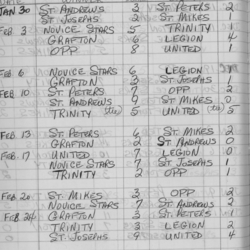 JAN 30 ST. ANDREWS 3 ST. PETERS 2
ST. JOSEPHS 2 ST. MIKES 2
FEB 3 NOVICE STARS 5 TRINITY 1
GRAFTON 6 LEGION 4
OPP 8 UNITED 1
FEB 6 NOVICE STARS 6 LEGION
GRAFTON 3 ST. JOSEPHS 1
FEB 10 ST. PETERS 7 OPP 2
ST. ANDREWS 9 ST. MIKES 0
TRINITY (tie) 5 UNITED (tie) 5
FEB 13 ST. PETERS 6 ST. MIKES 2
GRAFTON 2 ST. ANDREWS 0
FEB 17 UNITED 7 LEGION 0
NOVICE STARS 7 ST. JOSEPHS 1
TRINITY 2 OPP 1
FEB 20 ST. MIKES 3 OPP 2
NOVICE STARS 7 ST. ANDREWS 2
FEB 24 GRAFTON 3 ST. PETERS 1
TRINITY 3 LEGION 2
ST. JOSEPHS 9 UNITED